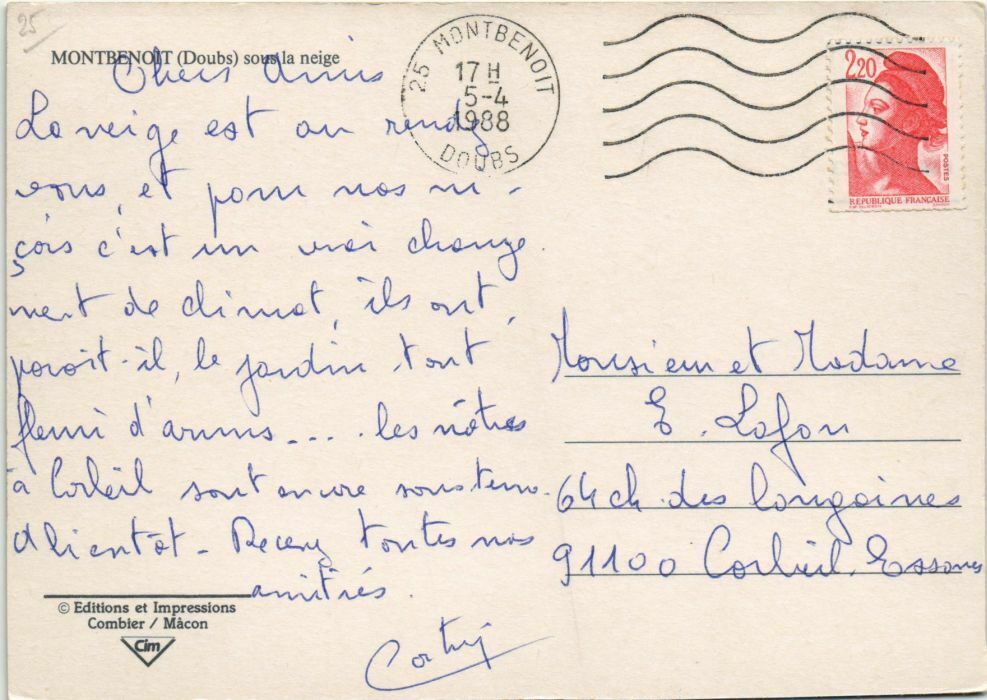 25
MONTBENOIT (Doubs) sous la neige
Chers Amis
La neige est au rendez
vous, et pour nos ni-
çois c'est un vrai change
ment de climat, ils ont,
paroît-il, le jardin tout
fleuri d'arums.... les nôtres
à Corbeil sont encore sous terre.
A bientôt - Recevez toutes nos
amitiés.
© Editions et Impressions
Combier / Mâcon
Cim
25 MONTBENOIT
17 H
5-4
1988
DOUBS
2,20
POSTES
REPUBLIQUE FRANÇAISE
Monsieur et Madame
E. Lafon
64 ch. des longaines
91100 Corbeil. Essonnes